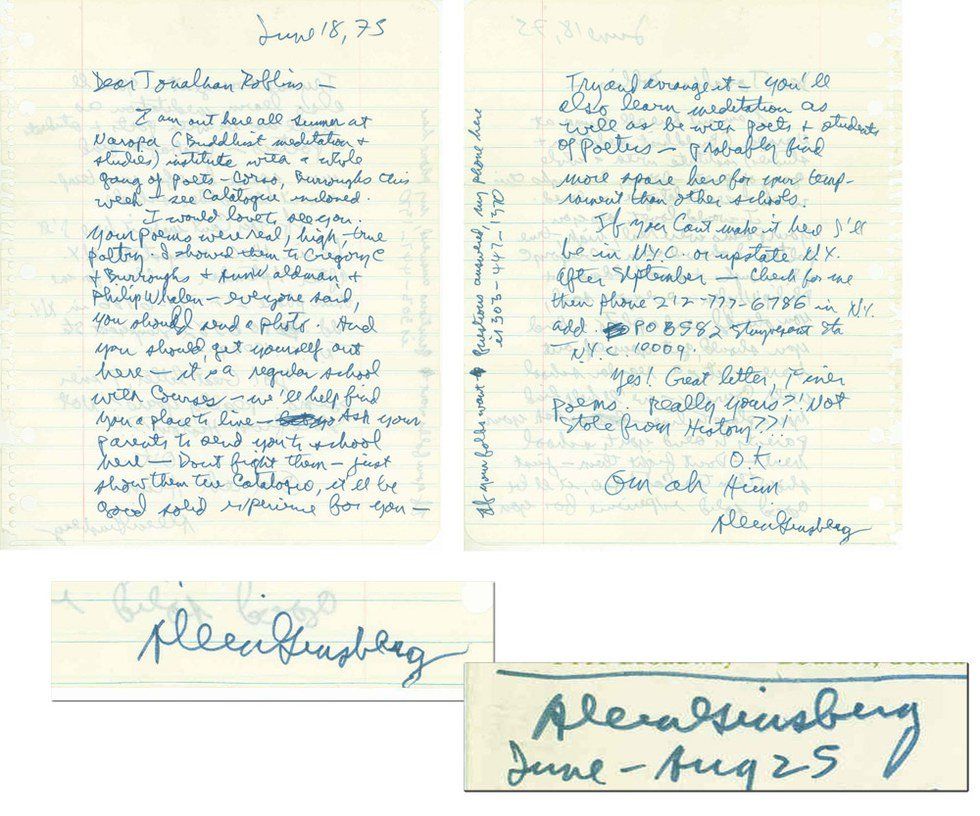 June 18, 75
Dear Jonathan Robbins —
I am out here all summer at
Naropa (Buddhist meditation &
studies) institute with a whole
gang of poets – Corso, Burroughs this
week – see Catalogue inclosed.
I would love to see you.
Your poems were real, high, true
poetry. I showed them to Gregory C
& Burroughs & Ann Waldman &
Philip Whalen – everyone said,
you should send a photo. And
you should get yourself out
here – it is a regular school
with Courses – we'll help find
you a place to live – Ask your
parents to send you to school
here — Dont fight them – just
show them the Catalog, it'll be
good solid experience for you —
Try and arrange it – you'll
also learn meditation as
well as be with poets & students
of Poetics – probably find
more space here for your temp-
rament than other schools.
If you Cant make it here I'll
be in N.Y.C. or upstate N.Y.
after September — Check for me
then phone 212-777-6786 in N.Y.
add. POB 582 Stuyvesant Sta
N.Y.C. 10009.
Yes! Great letter, finer
poems. Really yours?! Not
stole from History??!
O.K.
Om ah Hum
Allen Ginsberg
If your folks want questions answered, my phone here
is 303-447-1370
Allen Ginsberg
Allen Ginsberg
June – Aug 25